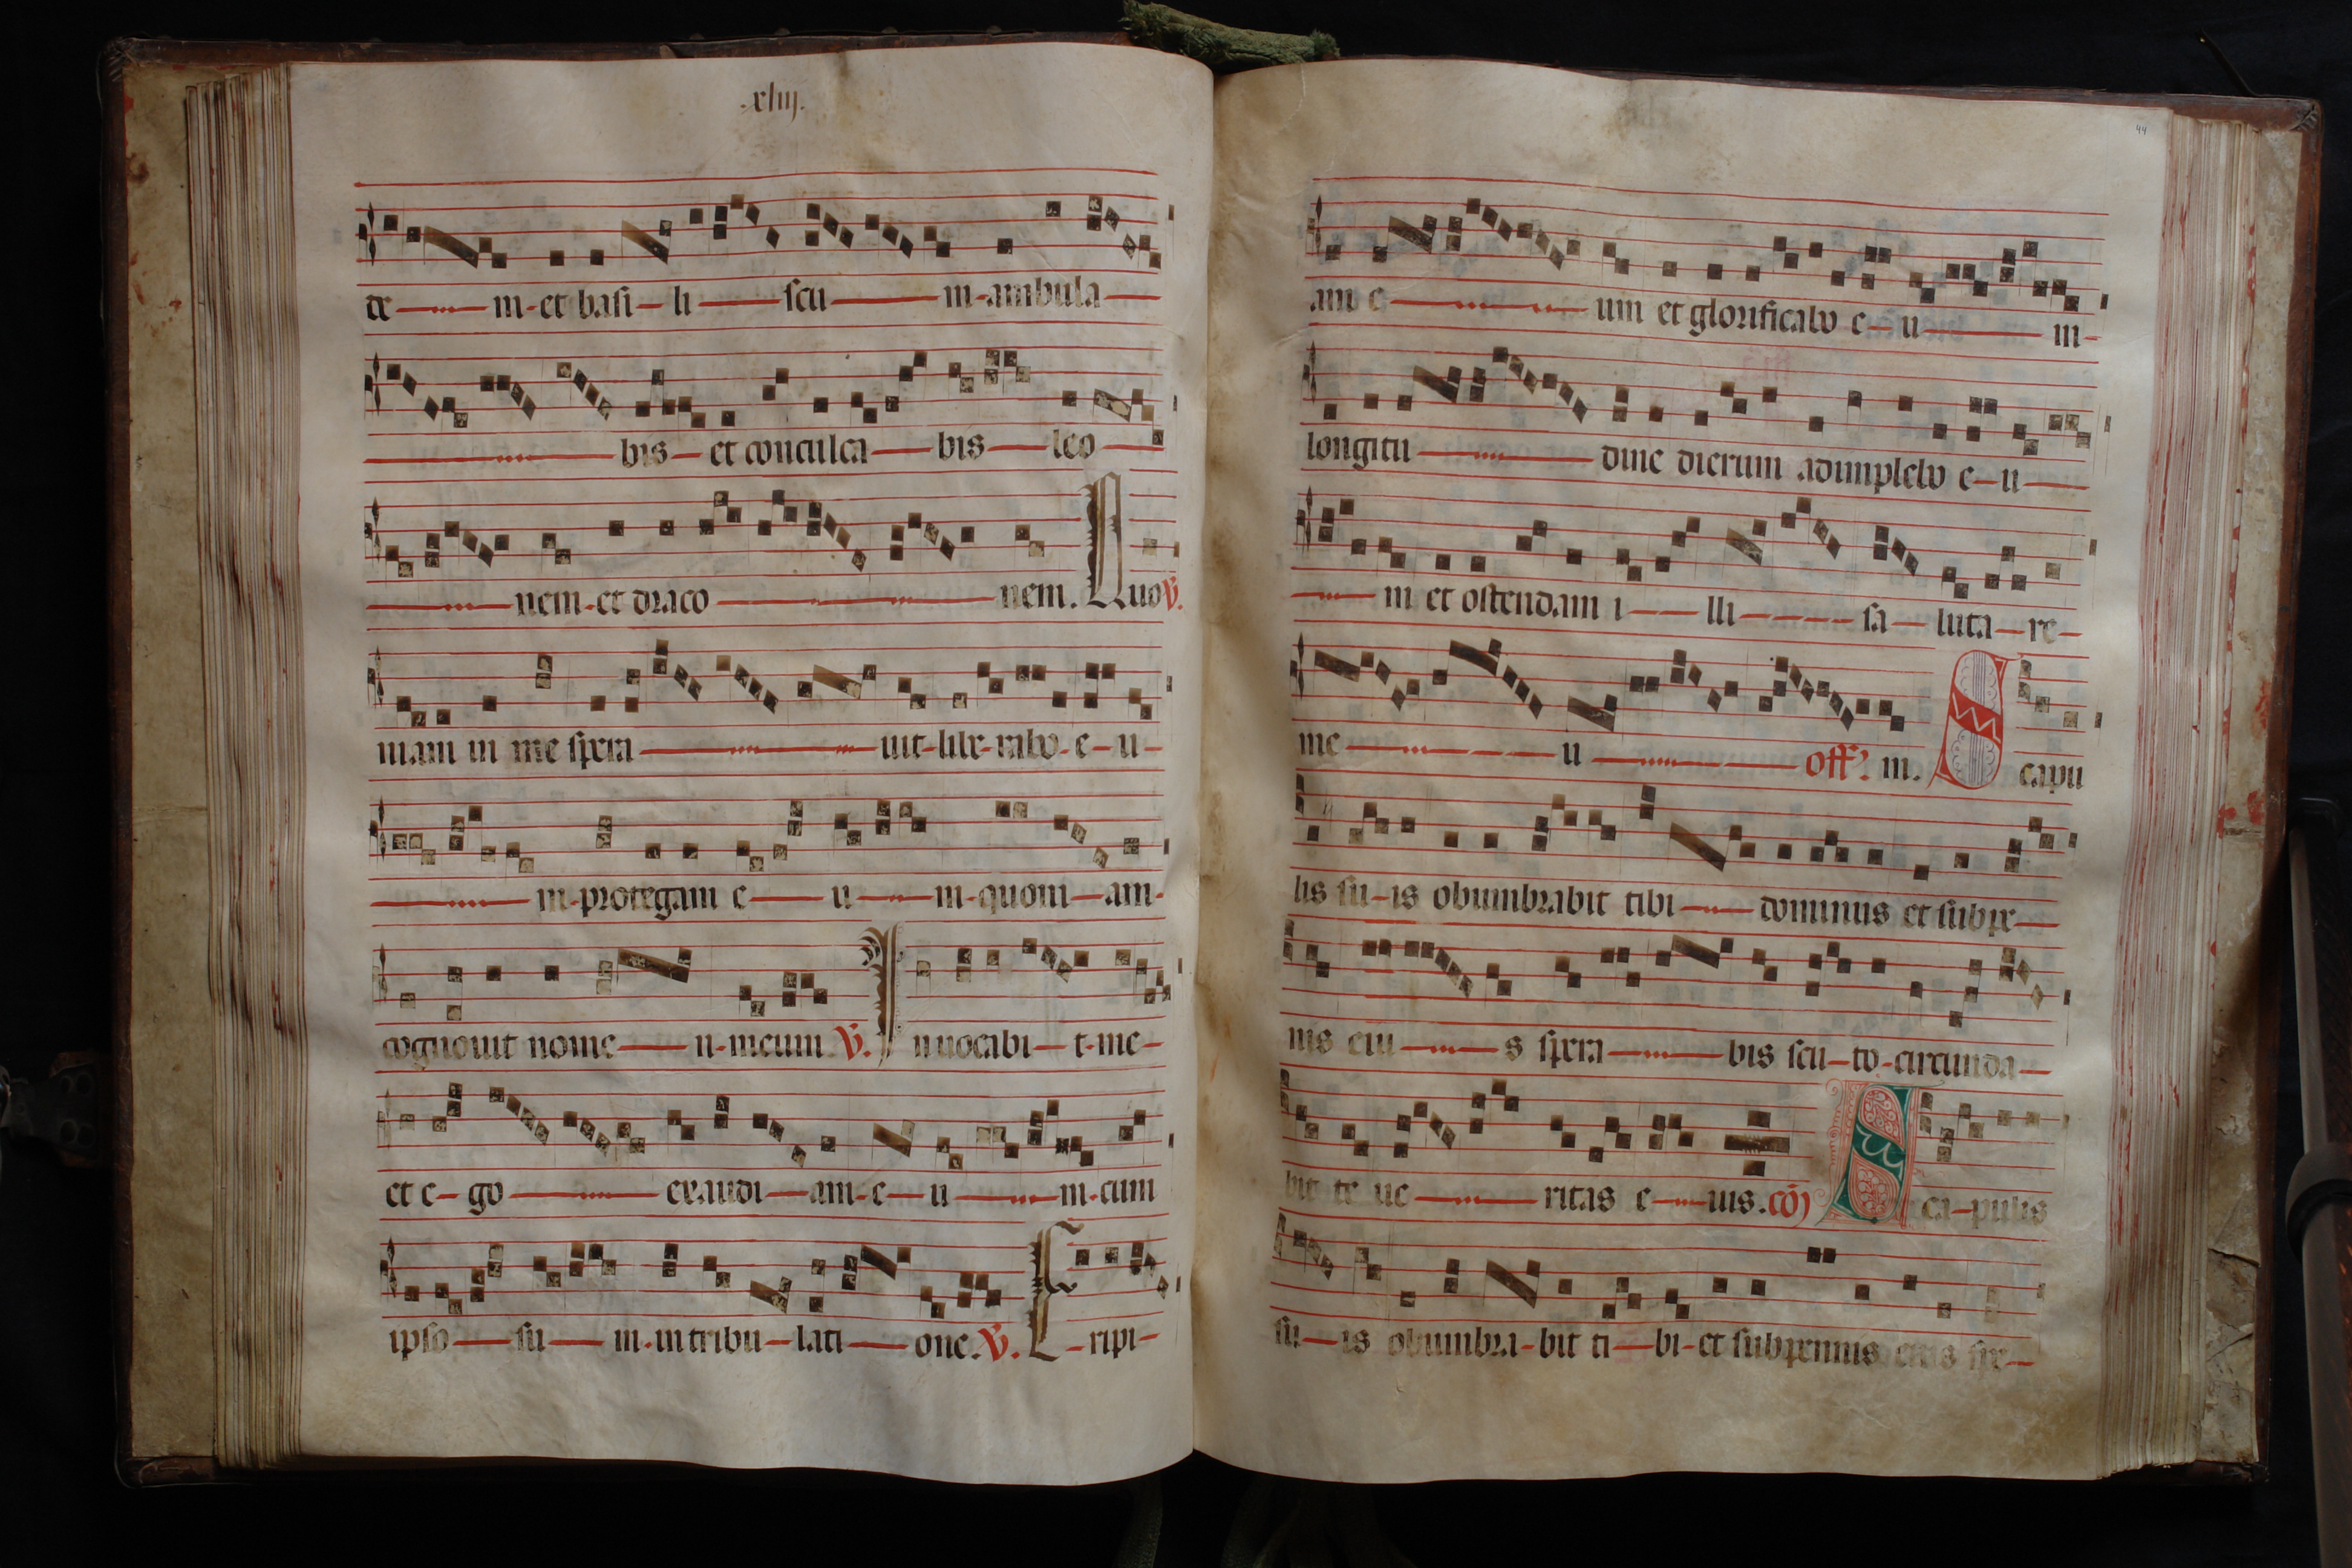 .xliij.
te m et basi li scu m ambula
bis et conculca bis leo
nem et draco nem. Quo V.
niam in me spera uit libe rabo e u
m protegam e u m quoni am
cognouit nome n meum V. Inuocabi t me
et e go exaudi am e u m cum
ipso su m in tribu lati one. V. E ripi
am e um et glorificabo e u m
longitu dine dierum adimplebo e u
m et ostendam i lli sa luta re
me u m. off. Scapu
lis su is obumbrabit tibi dominus et sub pe
nis eiu s spera bis scu to circunda
bit te ue ritas e ius. co Sca pulis
su is obumbra bit ti bi et sub pennis eius spe
44